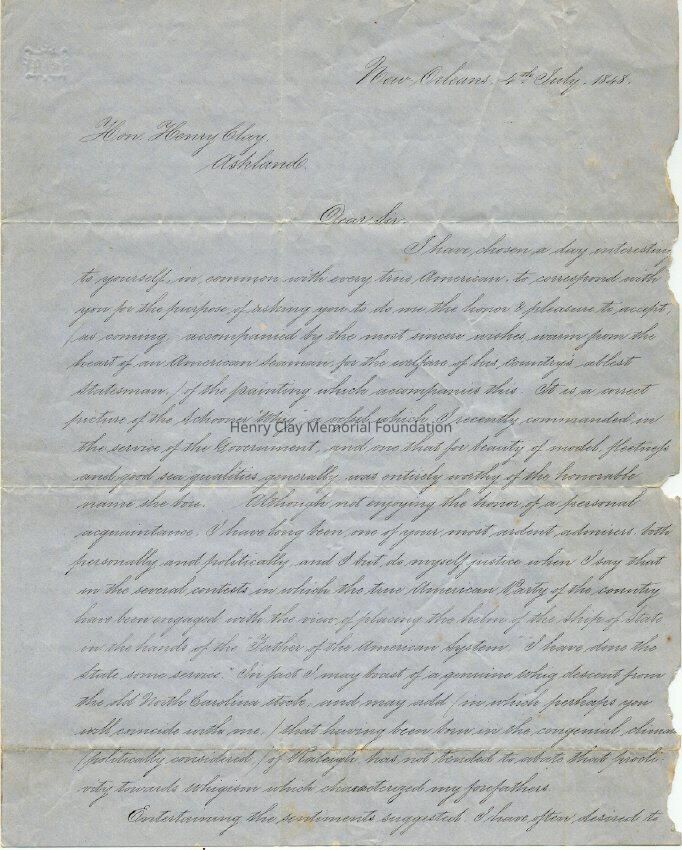 New Orleans. 4th July. 1848.
Hon. Henry Clay,
Ashland.
Dear Sir.
I have chosen a day interesting
to yourself, in common with every true American, to correspond with
you for the purpose of asking you to do me the honor & pleasure to accept
(as coming, accompanied by the most sincere wishes warm from the
heart of an American Seaman, for the welfare of his Country's ablest
Statesman,) of the painting which acompanies this. It is a correct
picture of the Schooner "Whig" a vessel which I recently commanded in
Henry Clay Memorial Foundation
the service of the Government, and one that for beauty of model, fleetness
and good sea qualities generally, was entirely worthy of the honorable
name she bore. Although, not enjoying the honor of a personal
acquaintance, I have long been, one of your most ardent admirers both
personally and politically, and I but do myself justice when I say that
in the several contests in which the true American Party of the country
have been engaged with the view of placing the helm of the Ship of State
in the hands of the "Father of the American System" I have done the
State some service." In fact I may boast of a genuine Whig descent from
the old North Carolina stock, and may add (in which perhaps you
will coincide with me,) that having been born in the congenial clima
(politically considered,) of Raleigh has not tended to abate that procli-
vity towards Whigism which characterized my forefathers.
Entertaining the sentiments suggested. I have often desired to